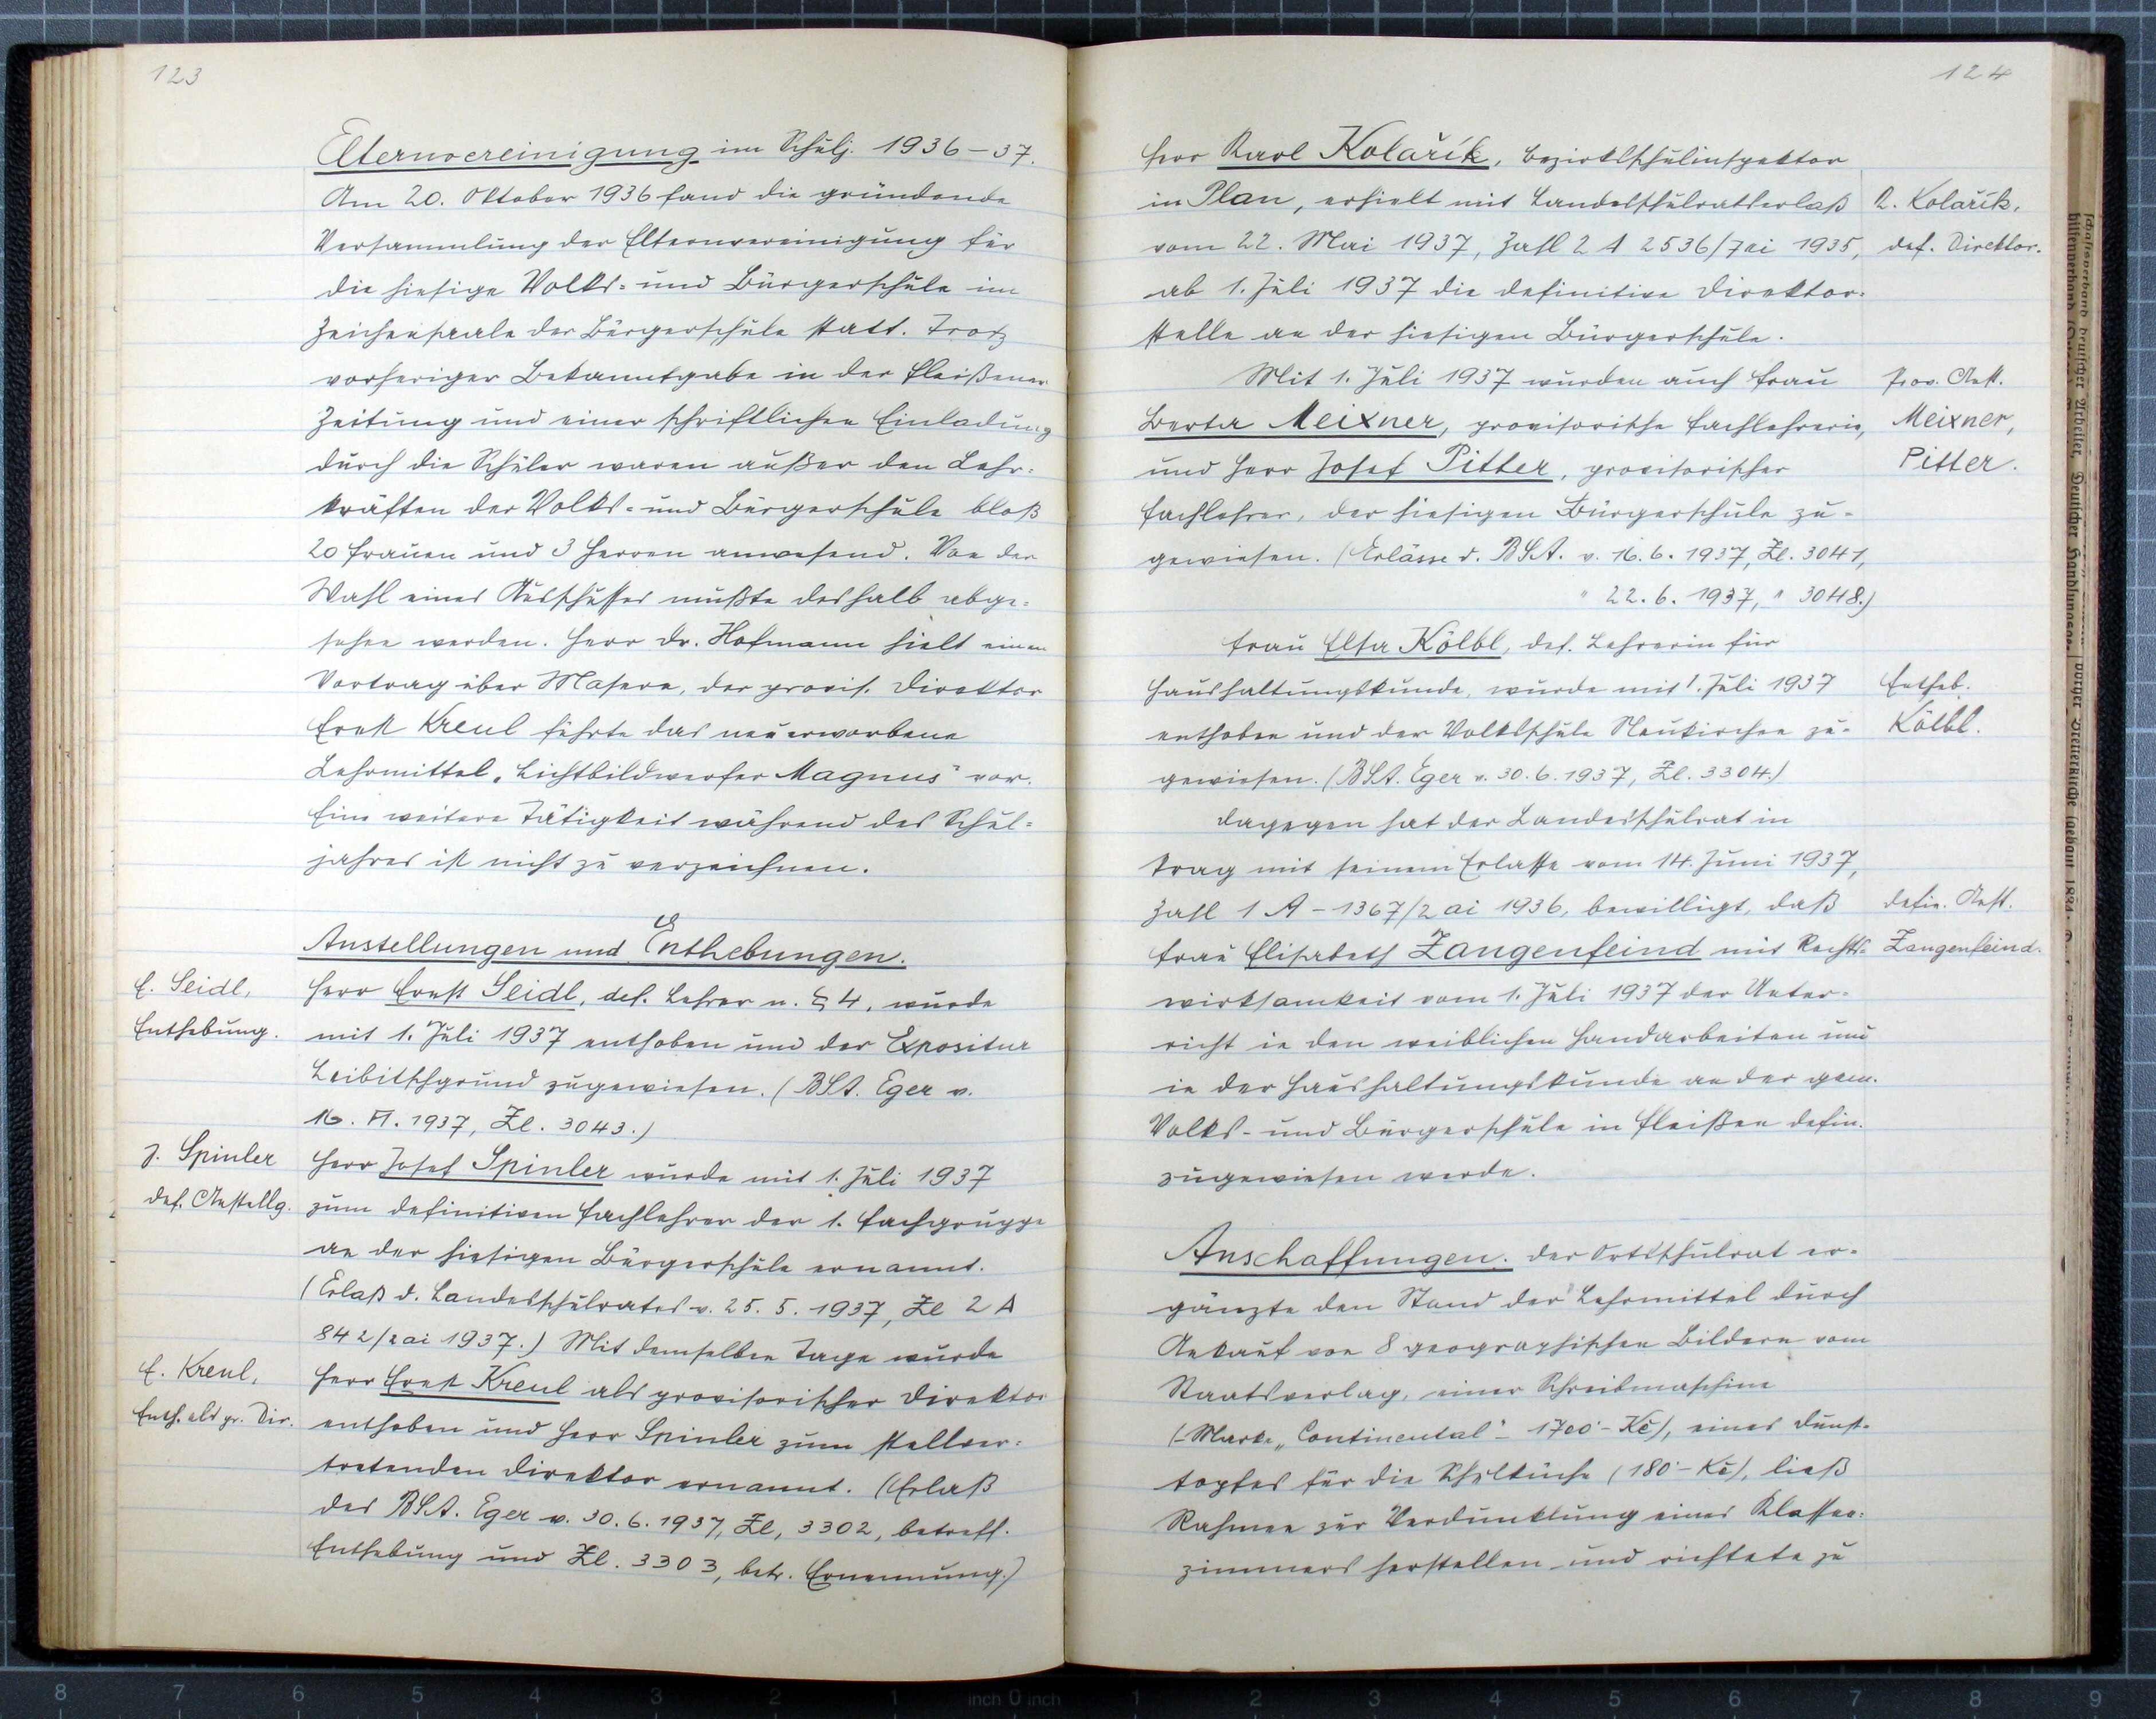 123
Elternvereinigung im Schulj. 1936–37.
Am 20. Oktober 1936 fand die gründende
Versammlung der Elternvereinigung für
die hiesige Volks= und Bürgerschule im
Zeichensaale der Bürgerschule statt. Trotz
vorheriger Bekanntgabe in der Fleißener
Zeitung und einer schriftlichen Einladung
durch die Schüler waren außer den Lehr=
kräften der Volks= und Bürgerschule bloß
20 Frauen und 3 Herren anwesend. Von der
Wahl eines Ausschusses mußte deshalb abge=
sehen werden. Herr Dr. Hofmann hielt einen
Vortrag über Masern, der provis. Direktor
Ernst Kreul führte das neuerworbene
Lehrmittel „Lichtbildwerfer Magnus" vor.
Eine weitere Tätigkeit während des Schul=
jahres ist nicht zu verzeichnen.
Anstellungen und Enthebungen.
E. Seidl,
Enthebung.
Herr Ernst Seidl, def. Lehrer n. § 4, wurde
mit 1. Juli 1937 enthoben und der Expositur
Leibitschgrund zugewiesen. (BSA. Eger v.
16. VI. 1937, Zl. 3043.)
J. Spinler
def. Anstellg.
Herr Josef Spinler wurde mit 1. Juli 1937
zum definitiven Fachlehrer der 1. Fachgruppe
an der hiesigen Bürgerschule ernannt.
(Erlaß d. Landesschulrates v. 25. 5. 1937, Zl 2 A
842/2ai 1937.) Mit demselben Tage wurde
E. Kreul,
Enth. als pr. Dir.
Herr Ernst Kreul als provisorischer Direktor
enthoben und Herr Spinler zum stellver=
tretenden Direktor ernannt. (Erlaß
des BSA. Eger v. 30. 6. 1937, Zl. 3302, betreff.
Enthebung und Zl. 3303, betr. Ernennung.)
124
Herr Karl Kolařík, Bezirksschulinspektor
in Plan, erhielt mit Landesschulratserlaß
vom 22. Mai 1937, Zahl 2 A 2536/7ai 1935,
ab 1. Juli 1937 die definitive Direktor=
stelle an der hiesigen Bürgerschule.
K. Kolařík,
def. Direktor.
Mit 1. Juli 1937 wurden auch Frau
Berta Meixner, provisorische Fachlehrerin,
und Herr Josef Pitter, provisorischer
Fachlehrer, der hiesigen Bürgerschule zu=
gewiesen. (Erlässe d. BSA. v. 16. 6. 1937, Zl. 3041,
" 22. 6. 1937, " 3048.)
Prov. Anst.
Meixner,
Pitter.
Frau Elsa Kölbl, def. Lehrerin für
Haushaltungskunde, wurde mit 1. Juli 1937
enthoben und der Volksschule Neukirchen zu=
gewiesen. (BSA. Eger v. 30. 6. 1937, Zl. 3304.)
Entheb.
Kölbl.
Dagegen hat der Landesschulrat in
Prag mit seinem Erlasse vom 14. Juni 1937,
Zahl 1 A – 1367/2 ai 1936, bewilligt, daß
Frau Elisabeth Zangenfeind mit Rechts=
wirksamkeit vom 1. Juli 1937 der Unter=
richt in den weiblichen Handarbeiten und
in der Haushaltungskunde an der gem.
Volks- und Bürgerschule in Fleißen defin.
zugewiesen werde.
defin. Anst.
Zangenfeind.
Anschaffungen. Der Ortsschulrat er=
gänzte den Stand der Lehrmittel durch
Ankauf von 8 geographischen Bildern vom
Staatsverlag, einer Schreibmaschine
(–Marke „Continental" – 1700·– Kč), eines Dunst=
topfes für die Schulküche (180·– Kč), ließ
Rahmen zur Verdunklung eines Klassen=
zimmers herstellen und richtete zu
8 7 6 5 4 3 2 1 inch 0 inch 1 2 3 4 5 6 7 8 9